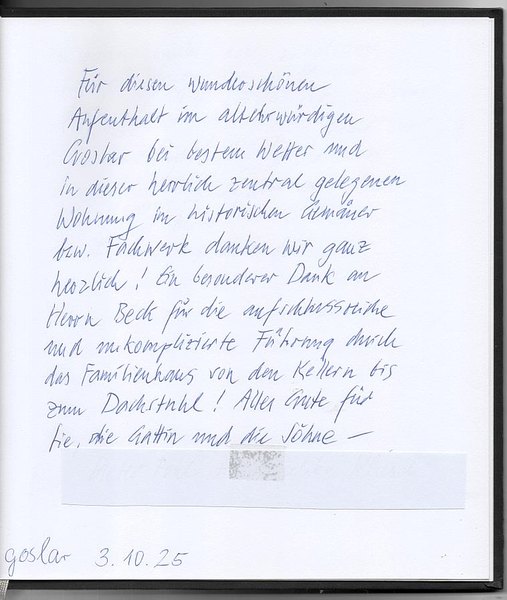 Für diesen wunderschönen
Aufenthalt im altehrwürdigen
Goslar bei bestem Wetter und
in dieser herrlich zentral gelegenen
Wohnung im historischen Gemäuer
bzw. Fachwerk danken wir ganz
herzlich! Ein besonderer Dank an
Herrn Beck für die aufschlussreiche
und unkomplizierte Führung durch
das Familienhaus von den Kellern bis
zum Dachstuhl! Alles Gute für
Sie, die Gattin und die Söhne –
Goslar 3.10.25